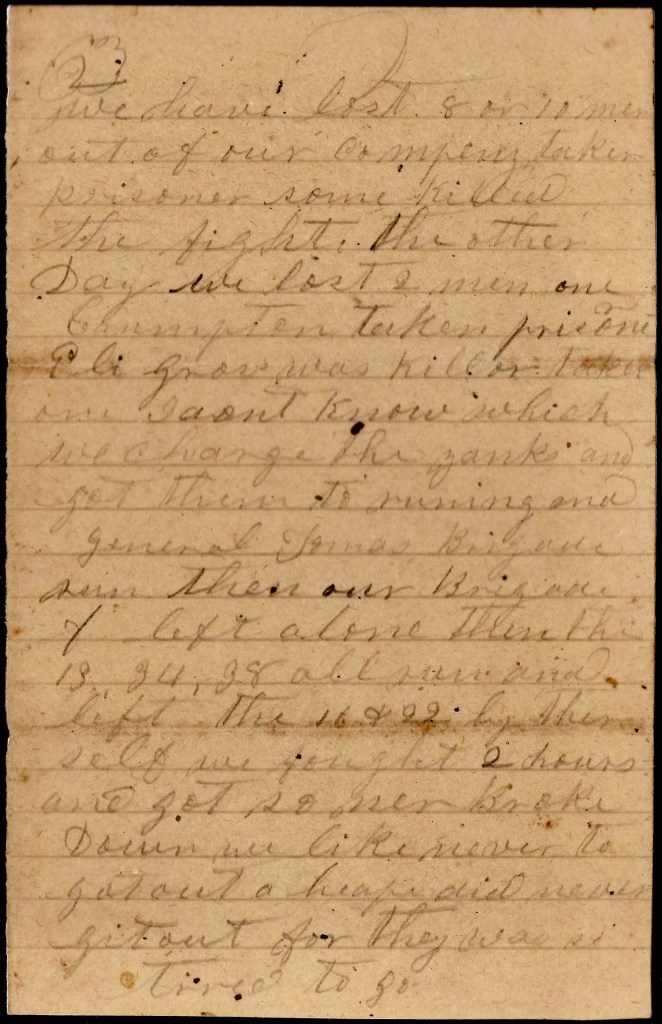 we have lost 8 or 10 men
out of our Compeny taken
prisoner some Killed
the fight the other
Day we lost 2 men one
Crumpton taken prisone
Eli grow was Kill or taken
one I dont Know which
we charge the yanks and
got them to runing and
general Tomas Brigade
run then our Brigade
left alone then the
13, 34, 38 all run and
left the 16 & 22 by them
self we fought 2 hours
and got so ner Broke
Down we like never to
got out a heape did never
git out for they was so
tired to go